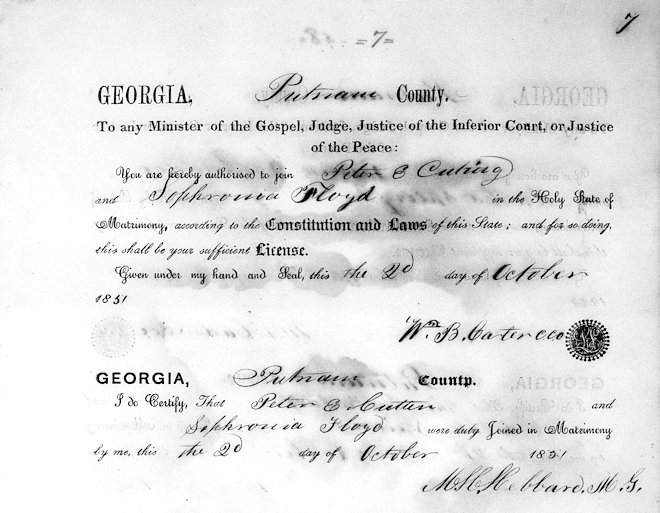 7
=7=
GEORGIA, Putnam County.
To any Minister of the Gospel, Judge, Justice of the Inferior Court, or Justice
of the Peace:
You are hereby authorised to join Peter E Cuting
and Sophronia Floyd in the Holy State of
Matrimony, according to the Constitution and Laws of this State; and for so doing,
this shall be your sufficient License.
Given under my hand and Seal, this the 2d day of October
1851
Wm B. Carter cco
GEORGIA, Putnam County.
I do Certify, That Peter E Cutten and
Sophronia Floyd were duly Joined in Matrimony
by me, this the 2d day of October 1851
Hebbard, M. G.